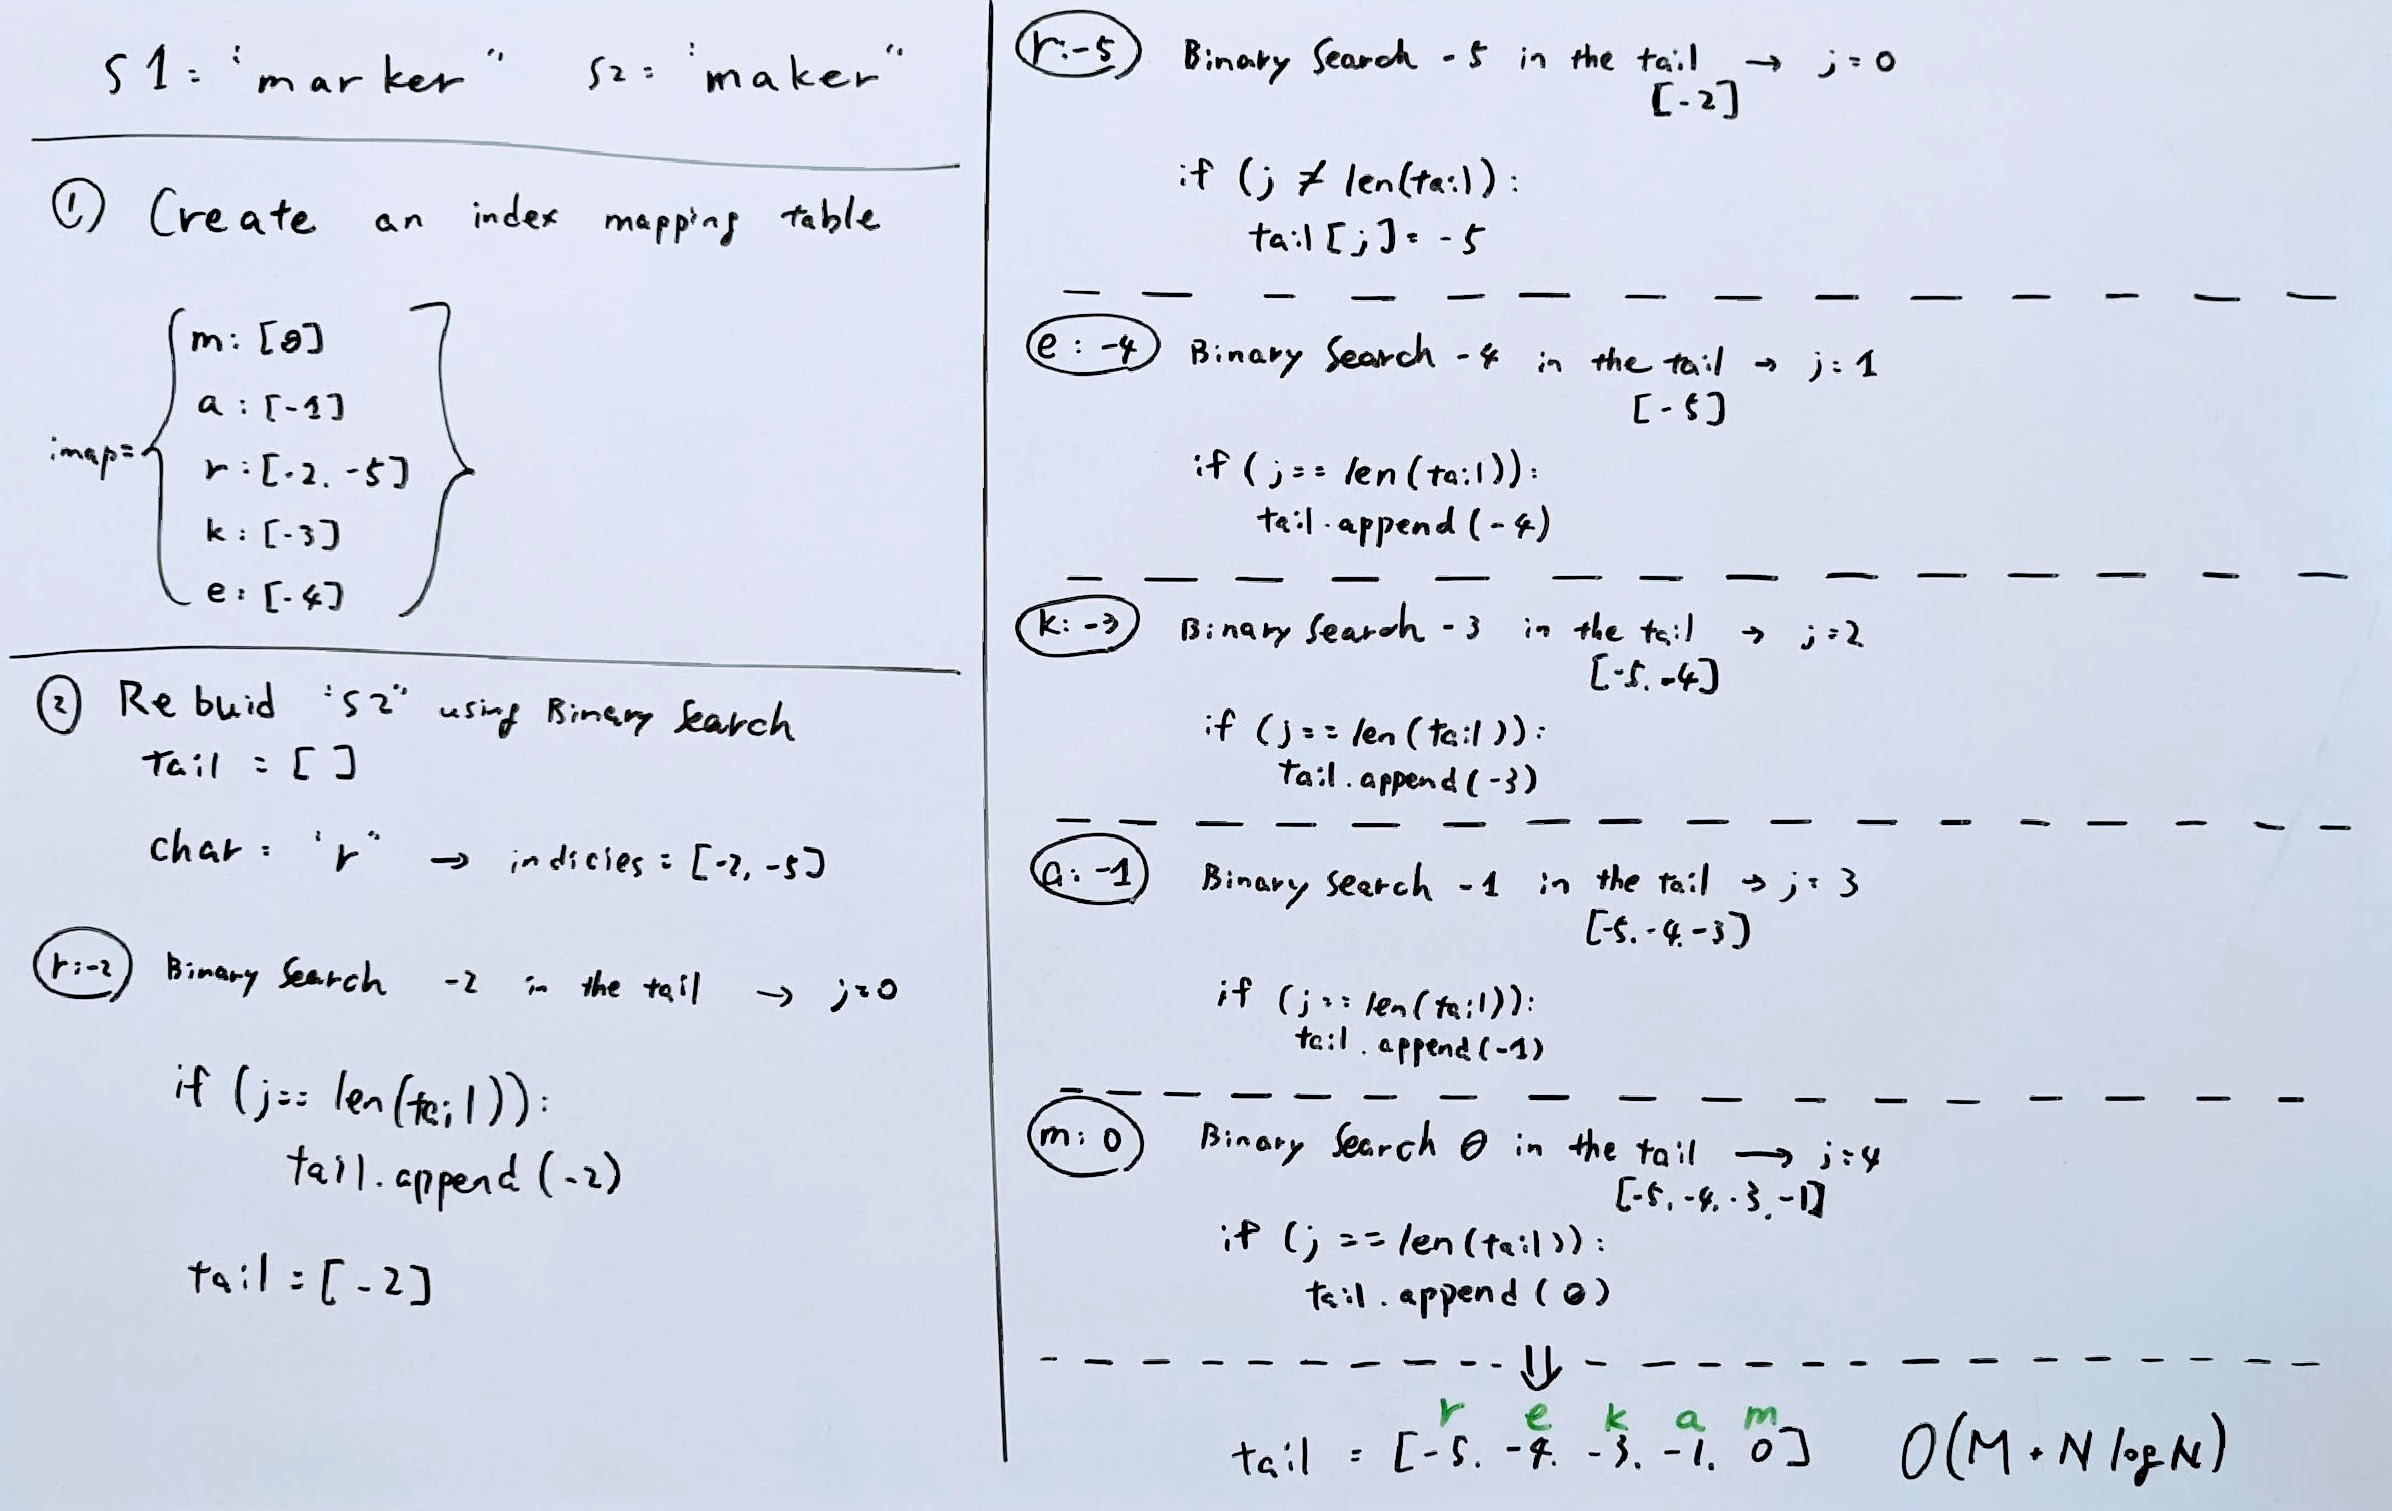 S1 = "marker" S2 = "maker"
① Create an index mapping table
imap = { m: [0]
a: [-1]
r: [-2, -5]
k: [-3]
e: [-4] }
② Rebuid "S2" using Binary Search
tail = []
char = "r" → indicies = [-2, -5]
r:-2 Binary Search -2 in the tail → j=0
if (j== len(tail)):
tail.append(-2)
tail = [-2]
r:-5 Binary Search -5 in the tail → j=0
[-2]
if (j ≠ len(tail):
tail[j] = -5
e: -4 Binary Search -4 in the tail → j=1
[-5]
if (j== len(tail)):
tail.append(-4)
k: -3 Binary Search -3 in the tail → j=2
[-5, -4]
if (j== len(tail)):
tail.append(-3)
a: -1 Binary Search -1 in the tail → j=3
[-5, -4, -3]
if (j== len(tail)):
tail.append(-1)
m: 0 Binary Search 0 in the tail → j=4
[-5, -4, -3, -1]
if (j == len(tail)):
tail.append(0)
⇓
r e k a m
tail = [-5, -4, -3, -1, 0] O(M + N log N)